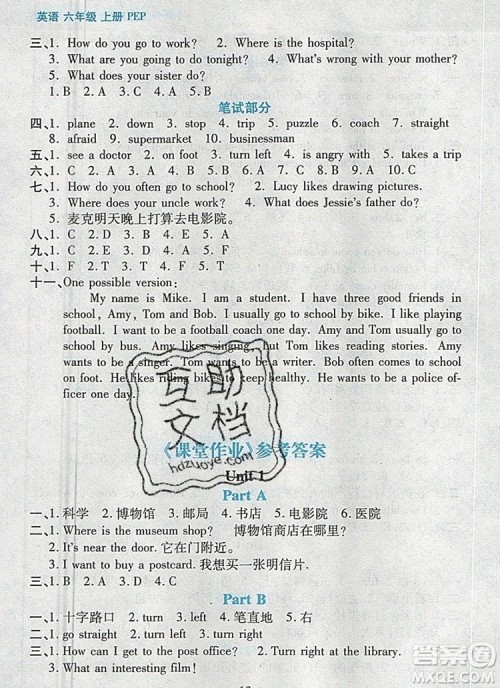 英语 六年级 上册 PEP
三、1. How do you go to work? 2. Where is the hospital?
3. What are you going to do tonight? 4. What's wrong?
5. What does your sister do?
1. B 2. A 3. C 4. A 5. B
笔试部分
四、1. plane 2. down 3. stop 4. trip 5. puzzle 6. coach 7. straight
8. afraid 9. supermarket 10. businessman
五、1. see a doctor 2. on foot 3. turn left 4. is angry with 5. takes a trip
六、1. C 2. A 3. A 4. B 5. C
七、1. How do you often go to school? 2. Lucy likes drawing pictures.
3. Where does your uncle work? 4. What does Jessie's father do?
5. 麦克明天晚上打算去电影院。
八、1. C 2. D 3. E 4. B 5. A
九、1. C 2. C 3. B 4. A 5. B
十、1. F 2. T 3. T 4. F 5. T
十一、One possible version:
My name is Mike. I am a student. I have three good friends in
school, Amy, Tom and Bob. I usually go to school by bus. I like playing
football. I want to be a football coach one day. Amy and Tom go to
school by bus. Amy likes singing, but Tom likes reading stories. Amy
wants to be singer. Tom wants to be a writer. Bob often comes to school
on foot. He likes riding bikes to keep healthy. He wants to be a police of-
ficer one day.
互助
文档
hdzuoye.com
《课堂作业》参考答案
Unit 1
Part A
一、1. 科学 2. 博物馆 3. 邮局 4. 书店 5. 电影院 6. 医院
二、1. Where is the museum shop? 博物馆商店在哪里?
2. It's near the door. 它在门附近。
3. I want to buy a postcard. 我想买一张明信片。
三、1. B 2. D 3. A 4. C
Part B
一、1. 十字路口 2. turn 3. left 4. 笔直地 5. 右
二、1. go straight 2. turn left 3. turn right
三、1. How can I get to the post office? 2. Turn right at the library.
3. What an interesting film!
答案圈
MXQE.COM